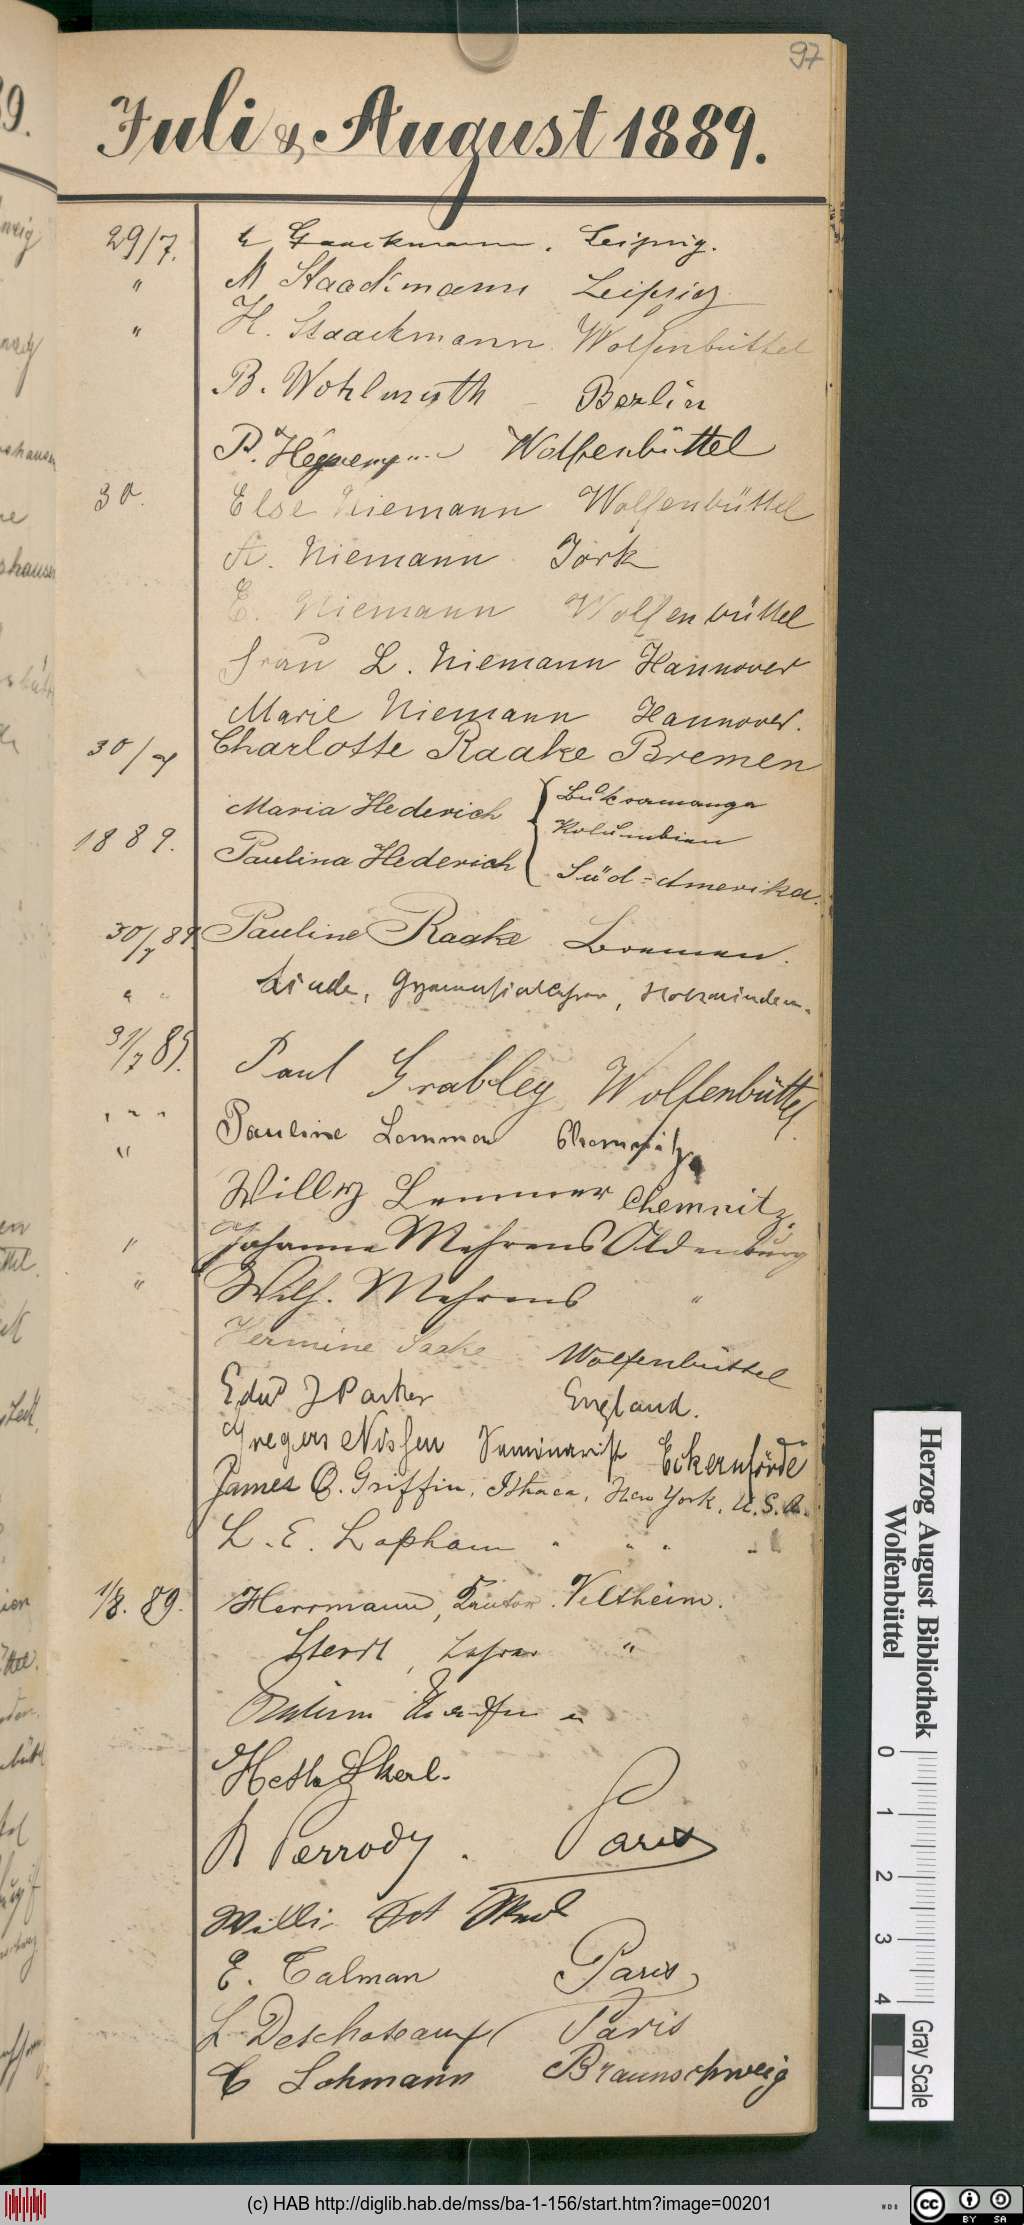 97
Juli & August 1889.
29/7. Leipzig.
" M Staackmann Leipzig
" H. Staackmann Wolfenbüttel
B. Wohlmuth - Berlin
P. Wolfenbüttel
30. Else Niemann Wolfenbüttel
A. Niemann Jork
E. Niemann Wolfenbüttel
Frau L. Niemann Hannover
Marie Niemann Hannover.
30/7 Charlotte Raake Bremen
Maria Hederich { Bukramanga
Kolumbien
1889. Paulina Hederich Süd=Amerika.
30/7 89. Pauline Raake Bremen.
" " Linde, Gymnasiallehrer, Holzminden.
31/7 89. Paul Grabley Wolfenbüttel.
" " " Pauline Lemmer Chemnitz
" Willy Lemmer Chemnitz.
" Johanne Mehrens Oldenburg
" Wilh. Mehrens "
Hermine Wolfenbüttel
Edwd J Parker England.
Gregers Nissen Seminarist Eckernförde
James O. Griffin, Ithaca, New York, U.S.A.
L. E. Lapham " " " " "
1/8. 89. Herrmann, Kantor. Veltheim.
Lehrer "
Skerl.
Perrody. Paris
Willi
E. Calman Paris
L Paris
C Lohmann Braunschweig
Herzog August Bibliothek
Wolfenbüttel
0 1 2 3 4
Gray Scale
(c) HAB http://diglib.hab.de/mss/ba-1-156/start.htm?image=00201
WDB
cc BY SA